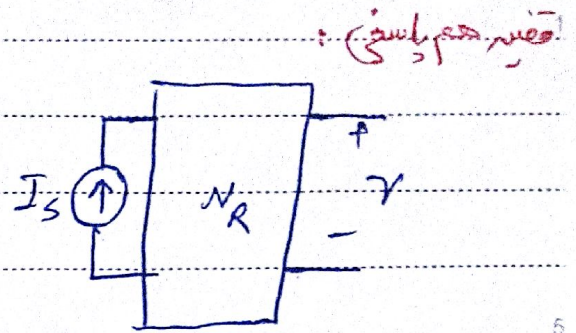 قضیه هم پاسخی :
I_S N_R + V -
5